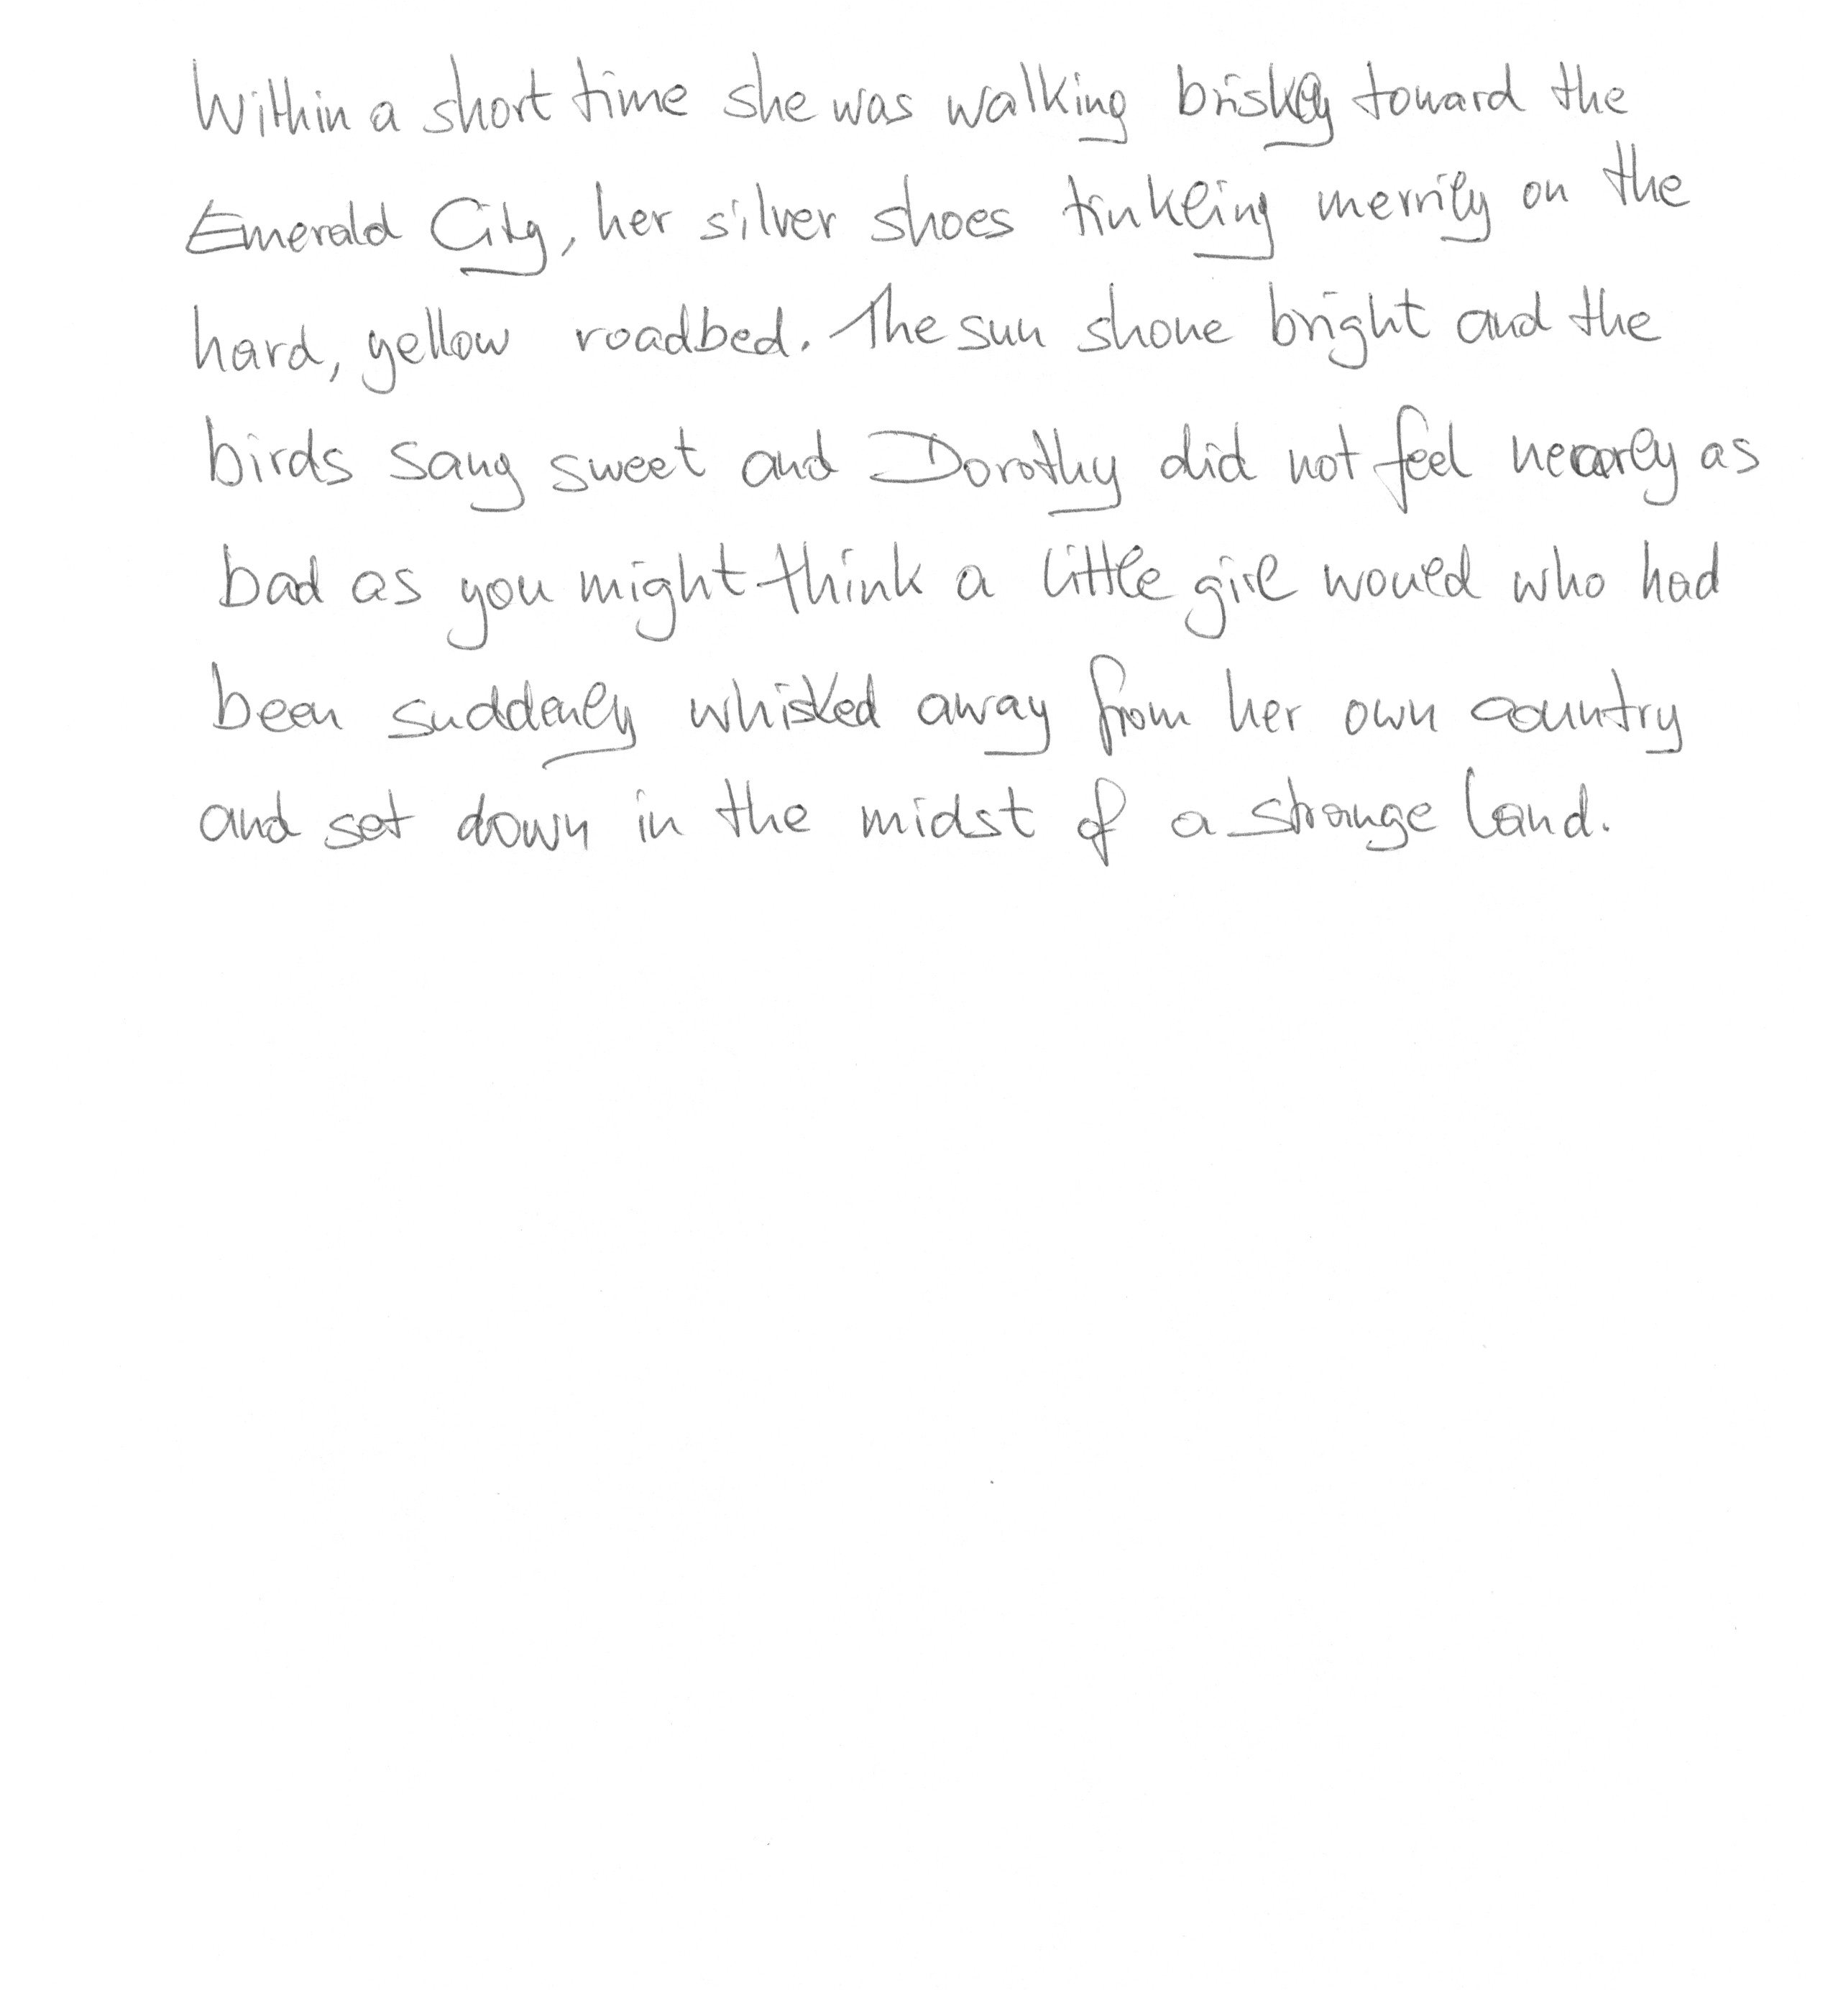 Within a short time she was walking briskly toward the
Emerald City, her silver shoes tinkling merrily on the
hard, yellow roadbed. The sun shone bright and the
birds sang sweet and Dorothy did not feel nearly as
bad as you might think a little girl would who had
been suddenly whisked away from her own country
and set down in the midst of a strange land.